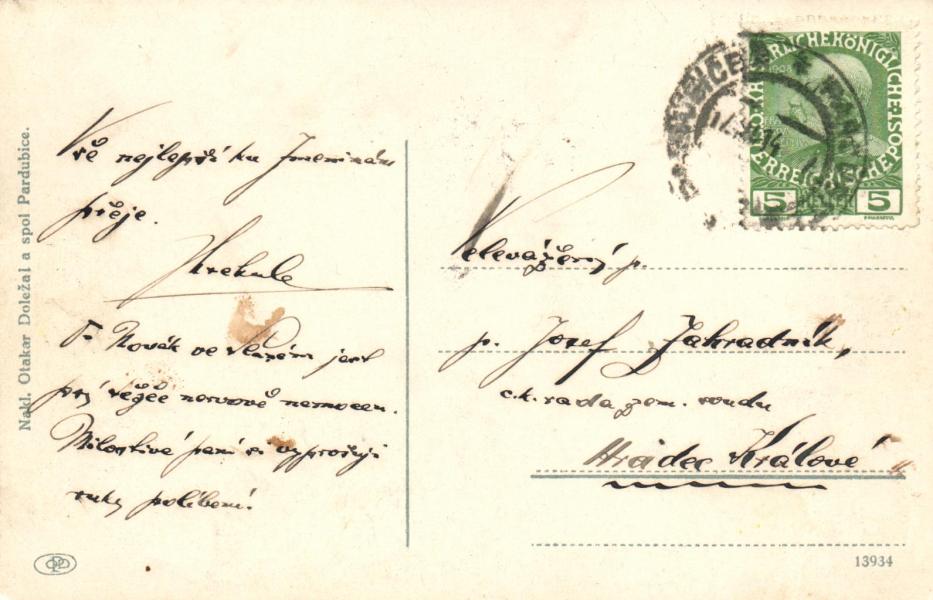 Vše nejlepší ku Jmeninám
přeje.
Hrekule
P. Novák ve vlastním jest
prý těžce nervově nemocen.
Milostivé paní si vyprošuji
ruky políbení!
Nakl. Otakar Doležal a spol Pardubice.
Velevážený p.
p. Josef Zahradník,
c.k. rada zem. soudu
Hradec Králové
13934
1908
K.K. ÖSTERREICHISCHE POST
5 HELLER 5